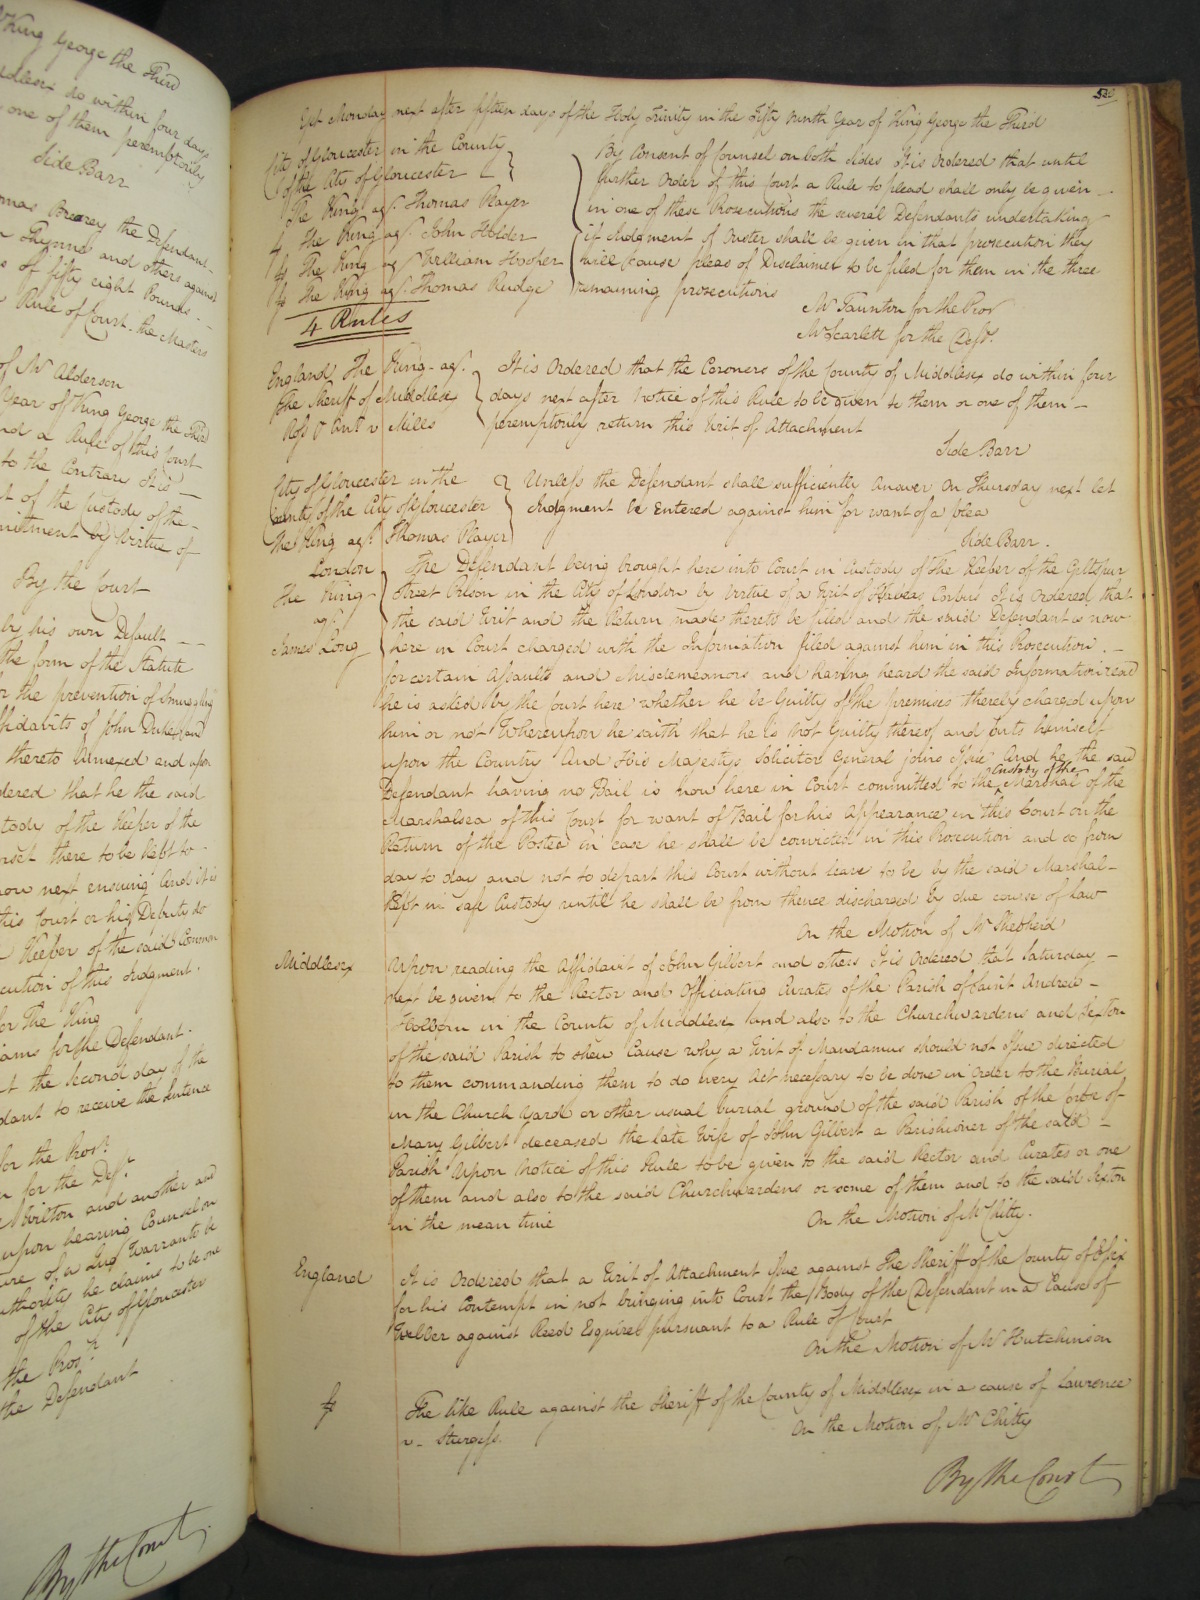 King George the Third
do within four days
one of them peremptorily
Side Barr
the Defendant
Thynne and others against
of fifty eight Pounds
Rule of Court the Masters
of Mr Alderson
Year of King George the Third
and a Rule of this Court
to the Contrary It is
of the Custody of the
by virtue of
By the Court
by his own Default
the form of the Statute
the prevention of Smuggling
Affidavits of John Dukes and
thereto Annexed and upon
ordered that he the said
Custody of the Keeper of the
there to be kept to
now next ensuing And it is
this Court or his Deputy do
Keeper of the said Common
Execution of this Judgment.
for The King
for the Defendant.
the second day of the
to receive the Sentence
for the Prosr.
for the Deft.
Wilton and another and
upon hearing Counsel on
of a Quo Warranto be
authority he claims to be one
of the City of Gloucester
the Prosr.
the Defendant
By the Court
Yet Monday next after fifteen days of the Holy Trinity in the Fifty Ninth Year of King George the Third
City of Gloucester in the County
of the City of Gloucester
The King agt. Thomas Player
The King agt. John Holder
The King agt. William Hooper
The King agt. Thomas Rudge
4 Rules
By Consent of Counsel on both sides It is Ordered that until
further Order of this Court a Rule to plead shall only be given
in one of these Prosecutions the several Defendants undertaking
if Judgment of Ouster shall be given in that prosecution they
will cause pleas of Disclaimer to be filed for them in the three
remaining prosecutions
Mr Taunton for the Prosr
Mr Scarlett for the Deft.
England The King agt.
the Sheriff of Middlesex
Ross & Ant v Mills
It is Ordered that the Coroners of the County of Middlesex do within four
days next after Notice of this Rule to be given to them or one of them
peremptorily return this Writ of Attachment
Side Barr
City of Gloucester in the
County of the City of Gloucester
The King agt. Thomas Player
Unless the Defendant shall sufficiently Answer on Thursday next let
Judgment be Entered against him for want of a plea
Side Barr.
London
The King
agt.
James Long
The Defendant being brought here into Court in Custody of The Keeper of the Giltspur
Street Prison in the City of London by virtue of a Writ of Habeas Corpus It is Ordered that
the said Writ and the Return made thereto be filed and the said Defendant is now
here in Court charged with the Information filed against him in this Prosecution
for certain Assaults and Misdemeanors and having heard the said Information read
he is asked by the Court here whether he be Guilty of the premises thereby charged upon
him or not Whereupon he saith that he is Not Guilty thereof and puts himself
upon the Country And His Majestys Solicitor General joins Issue And he the said
Defendant having no Bail is now here in Court committed to the custody of the Marshal of the
Marshalsea of this Court for want of Bail for his Appearance in this Court on the
Return of the Postea in case he shall be convicted in this Prosecution and so from
day to day and not to depart this Court without leave to be by the said Marshal
kept in safe Custody until he shall be from thence discharged by due course of Law
On the Motion of Mr Shepherd
Middlesex
Upon reading the Affidavit of John Gilbert and others It is Ordered that Saturday
next be given to the Rector and Officiating Curates of the Parish of Saint Andrew
Holborn in the County of Middlesex and also to the Churchwardens and Sexton
of the said Parish to shew Cause why a Writ of Mandamus should not Issue directed
to them commanding them to do every Act necessary to be done in Order to the Burial
in the Church Yard or other usual burial ground of the said Parish of the Corpse of
Mary Gilbert deceased the late Wife of John Gilbert a Parishioner of the said
Parish Upon Notice of this Rule to be given to the said Rector and Curates or one
of them and also to the said Churchwardens or some of them and to the said Sexton
in the mean time
On the Motion of Mr Chitty.
England
It is Ordered that a Writ of Attachment Issue against The Sheriff of the County of Essex
for his Contempt in not bringing into Court the Body of the Defendant in a Cause of
Weller against Reed Esquire pursuant to a Rule of Court
On the Motion of Mr Hutchinson
The like Rule against the Sheriff of the County of Middlesex in a cause of Laurence
v. Sturgess.
On the Motion of Mr Chitty
By the Court